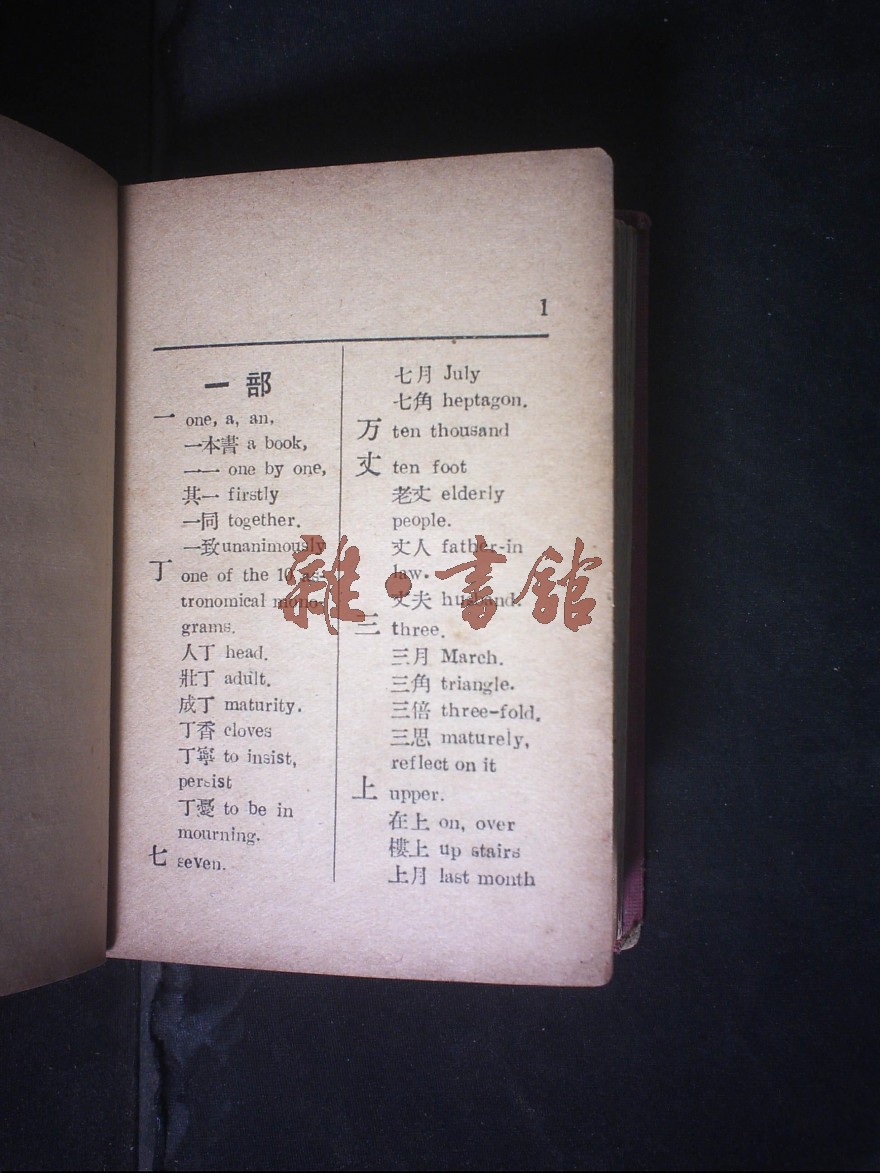 1
一部
一 one, a, an,
一本書 a book,
一一 one by one,
其一 firstly
一同 together.
一致 unanimously
丁 one of the 10 as-
tronomical mono-
grams.
人丁 head.
壯丁 adult.
成丁 maturity.
丁香 cloves
丁寧 to insist,
persist
丁憂 to be in
mourning.
七 seven.
七月 July
七角 heptagon.
万 ten thousand
丈 ten foot
老丈 elderly
people.
丈人 father-in
law.
丈夫 husband.
三 three.
三月 March.
三角 triangle.
三倍 three-fold.
三思 maturely,
reflect on it
上 upper.
在上 on, over
樓上 up stairs
上月 last month
雜·書館